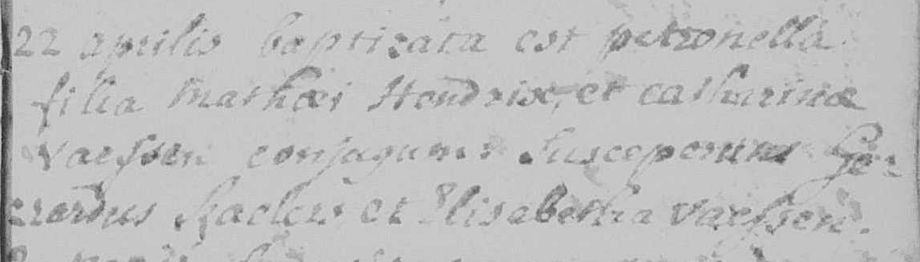 22 aprilis baptizata est petronella
filia Mathæi Hendrix, et catharinæ
vaessen conjugum: Susceperunt Ge-
rardus et Elisabetha vaessen.